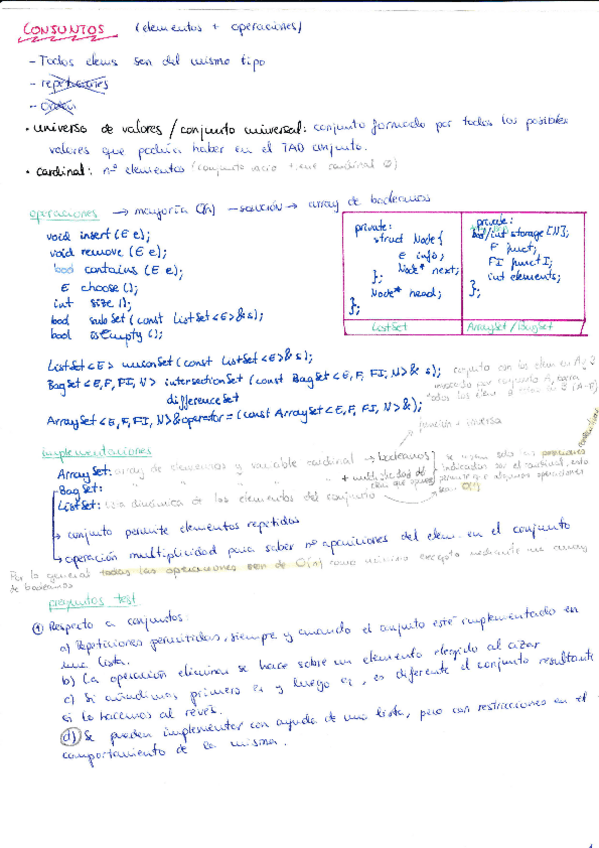 CONJUNTOS (elementos + operaciones)
- Todos elems son del mismo tipo
- repeticiones
- orden
• universo de valores / conjunto universal: conjunto formado por todos los posibles
valores que podría haber en el TAD conjunto.
• cardinal: nº elementos (conjunto vacío tiene cardinal 0)
operaciones → mayoría O(n) - solución → array de booleanos
void insert (E e);
void remove (E e);
bool contains (E e);
E choose ();
int size ();
bool subSet (const ListSet<E>& s);
bool isEmpty ();
private:
struct Node {
E info;
Node* next;
};
Node* head;
};
ListSet
private:
bool/int storage [N];
F funct;
FI functI;
int elements;
};
ArraySet / BagSet
ListSet<E> unionSet (const ListSet<E>& s);
BagSet<E, F, FI, N> intersectionSet (const BagSet<E, F, FI, N>& s);
differenceSet
ArraySet<E, F, FI, N>& operator= (const ArraySet<E, F, FI, N>&);
función + inversa
implementaciones
ArraySet: array de elementos y variable cardinal → booleanos
BagSet: " " " "
ListSet: lista dinámica de los elementos del conjunto
→ conjunto permite elementos repetidos
→ operación multiplicidad para saber nº apariciones del elem. en el conjunto
Por lo general todas las operaciones son de O(n) como mínimo excepto mediante un array
de booleanos
preguntas test
① Respecto a conjuntos:
a) Repeticiones permitidas, siempre y cuando el conjunto esté implementado en
una lista.
b) La operación eliminar se hace sobre un elemento elegido al azar
c) Si añadimos primero e1 y luego e2, es diferente el conjunto resultante
si lo hacemos al revés.
d) Se pueden implementar con ayuda de una lista, pero con restricciones en el
comportamiento de la misma.